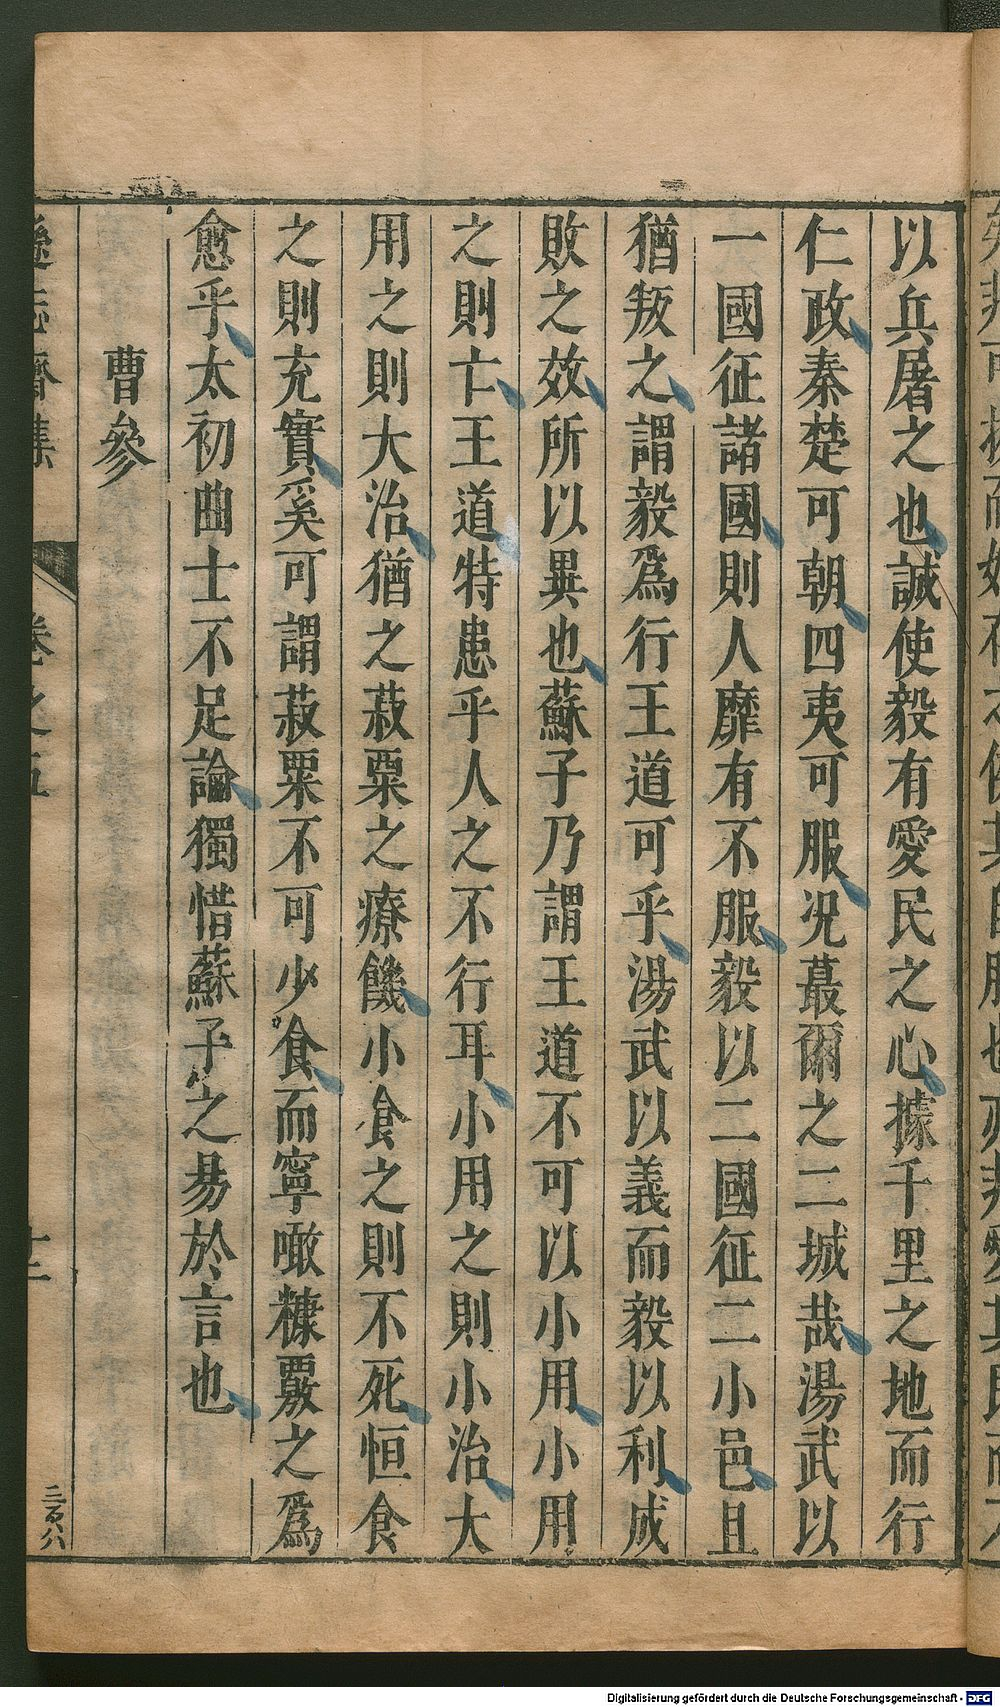 以兵屠之也誠使毅有愛民之心據千里之地而行
仁政秦楚可朝四夷可服况蕞爾之二城哉湯武以
一國征諸國則人靡有不服毅以二國征二小邑且
猶叛之謂毅爲行王道可乎湯武以義而毅以利成
敗之效所以異也蘇子乃謂王道不可以小用小用
之則亡王道特患乎人之不行耳小用之則小治大
用之則大治猶之菽粟之療饑小食之則不死恒食
之則充實奚可謂菽粟不可少食而寧噉糠覈之爲
愈乎太初曲士不足論獨惜蘇子之易於言也
曹參
遜志齋集
卷之五
二百八
Digitalisierung gefördert durch die Deutsche Forschungsgemeinschaft - DFG